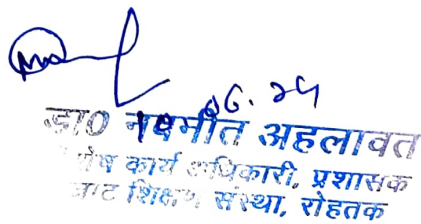 06.24
डा0 नवमीत अहलावत
कार्य अधिकारी, प्रशासक
जाट शिक्षण संस्था, रोहतक